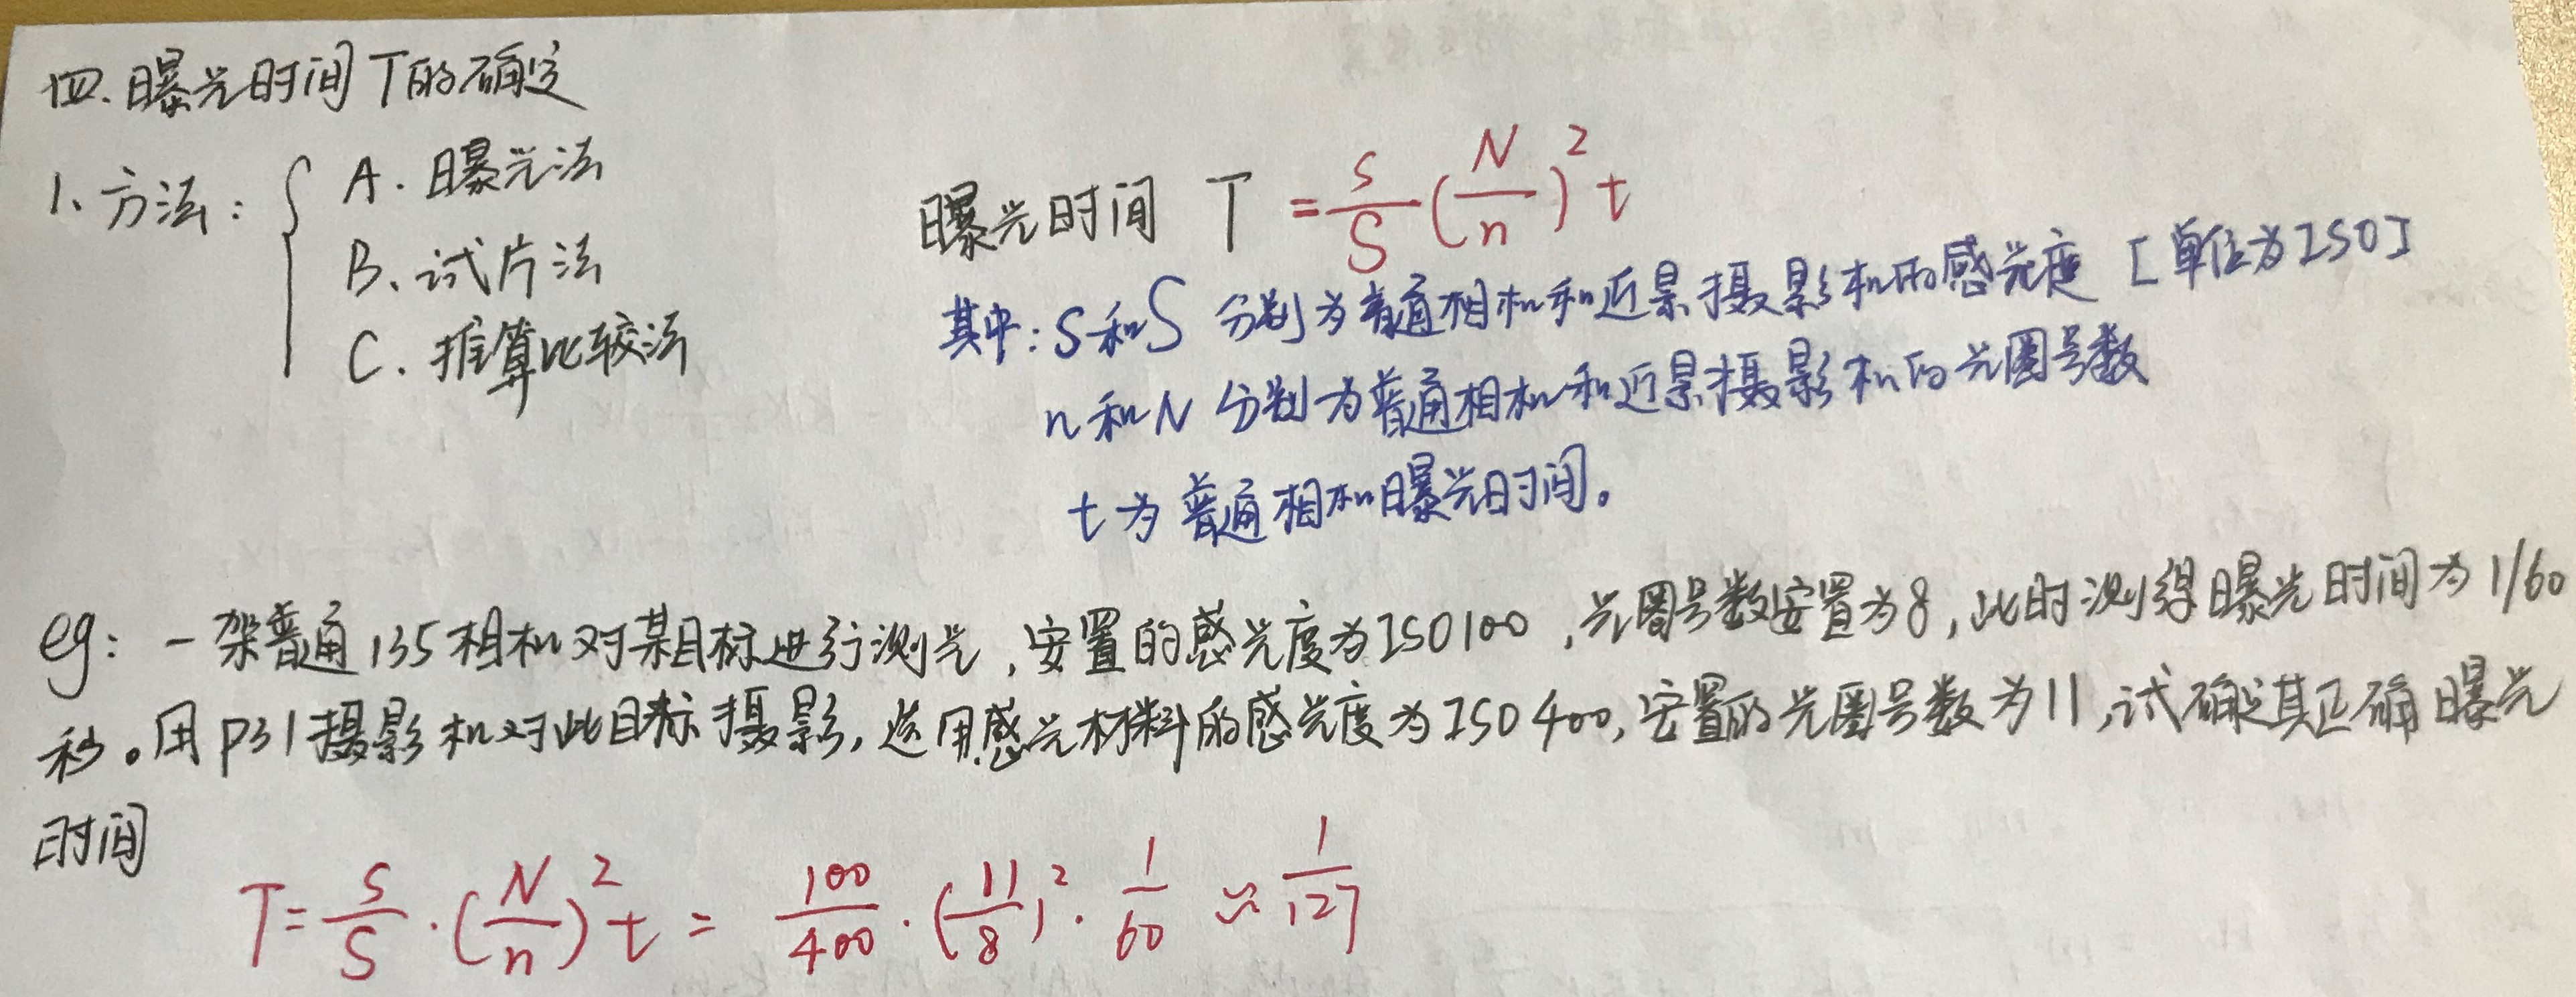 四.曝光时间T的确定
1、方法：{ A.曝光法
B、试片法
C.推算比较法
曝光时间 T = s/S (N/n)² t
其中：s和S 分别为普通相机和近景摄影机的感光度 [单位为ISO]
n和N 分别为普通相机和近景摄影机的光圈号数
t为普通相机曝光时间。
eg：一架普通135相机对某目标进行测光，安置的感光度为ISO100，光圈号数安置为8，此时测得曝光时间为1/60
秒。用P31摄影机对此目标摄影，选用感光材料的感光度为ISO400，安置的光圈号数为11，试确定其正确曝光
时间
T = s/S · (N/n)² t = 100/400 · (11/8)² · 1/60 ≈ 1/127